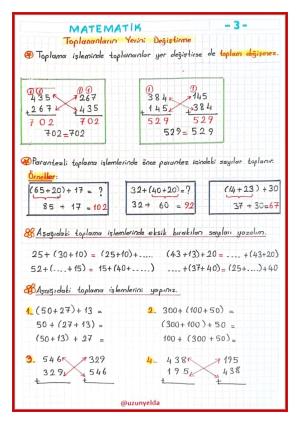 MATEMATİK -3-
Toplananların Yerini Değiştirme
Toplama işleminde toplananlar yer değiştirse de toplam değişmez.
435 267 384 145
267 435 145 384
+ + + +
702 702 529 529
702=702 529=529
Parantezli toplama işlemlerinde önce parantez içindeki sayılar toplanır.
Örnekler:
(65+20)+17 = ? 32+(40+20)=? (4+23)+30
85 + 17 =102 32+ 60 =92 37+30=67
Aşağıdaki toplama işlemlerinde eksik bırakılan sayıları yazalım.
25+(30+10) = (25+10)+..... (43+13)+20 =.....+(43+20)
52+(....+15) = 15+(40+..... ....+(37+40) =(25+....)+40
Aşağıdaki toplama işlemlerini yapınız.
1. (50+27)+13 = 2. 300+(100+50) =
50+(27+13) = (300+100)+50 =
(50+13)+27 = 100+(300+50) =
3. 546 329 4. 438 195
329 546 195 438
+ + + +
@uzunyelda